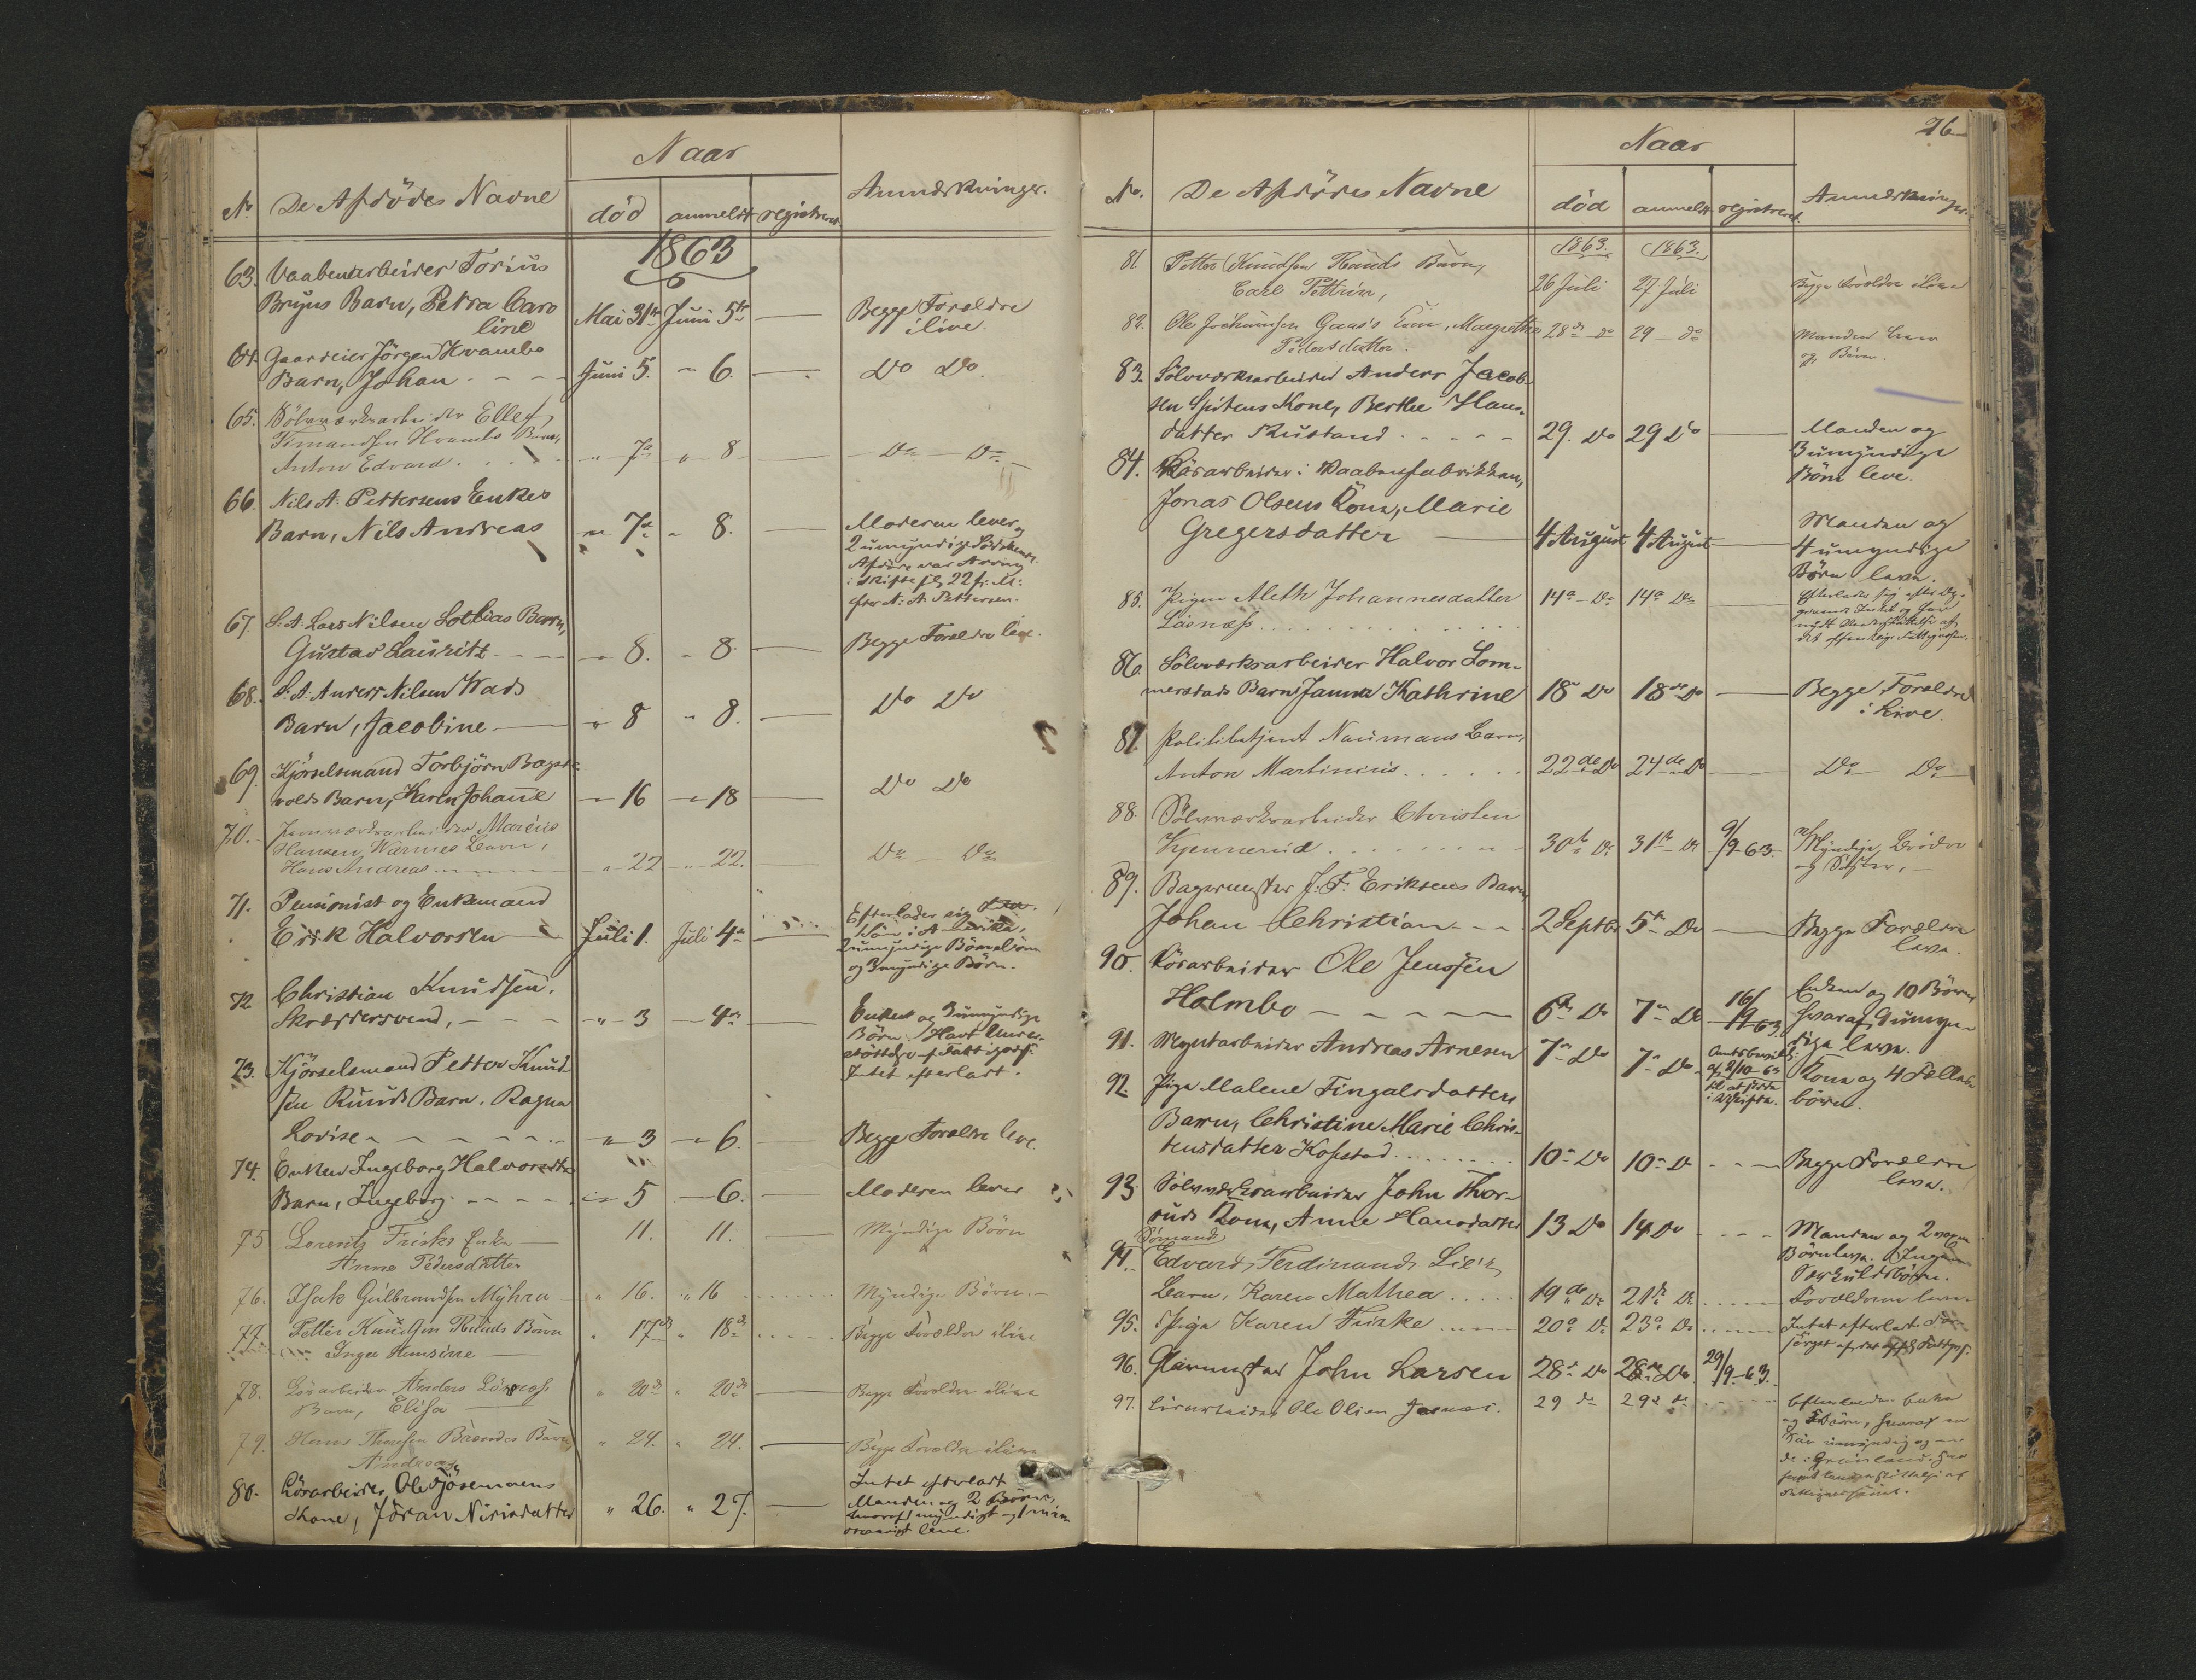 Naar
No. De Afdödes Navne död anmeldt registreret Anmærkninger.
1863
63. Vaabenarbeider Torius
Bryns Barn, Petra Caro
line Mai 31te Juni 5te — Begge Forældre
ilive.
64. Gaardeier Jörgen Kvambo
Barn, Johan Juni 5. " 6. — Do Do.
65. Sölvværksarbeider Ellef
Simensen Kvambo Barn,
Anton Edvard " 7de " 8 — Do — Do
66. Nils A. Pettersens Enkes
Barn, Nils Andreas " 7de " 8. — Moderen lever og
2 umyndige Södskende.
Afdöde var Arving
i Skifte fol. 22 fr. M:
efter N. A. Pettersen.
67. S. A. Lars Nilsen Sollias Barn,
Gustav Lauritz " 8. " 8. — Begge Forældre leve.
68. S. A. Anders Nilsen Wads
Barn, Jacobine " 8 " 8. — Do Do
69. Kjörselsmand Torbjörn Bagste-
volds Barn, Karen Johanne " 16 " 18 — Do Do
70. Jernværksarbeider Marcus
Hansen Warnes Barn,
Hans Andreas " 22 " 22. — Do — Do
71. Pensionist og Enkemand
Erik Halvorsen Juli 1. Juli 4de Efterlader sig
Sön i Amerika,
2 umyndige Börnebörn
og 3 myndige Börn.
72 Christian Knudsen.
Skræddersvend, " 3 " 4de — Enken og 3 umyndige
Börn. Havt Under-
støttelse af Fattigvæs.
Intet efterladt.
73. Kjörselsmand Petter Knud-
sen Ruuds Barn. Ragna
Lovise " 3 " 6. Begge Forældre leve.
74. Enken Ingeborg Halvorsdtrs
Barn, Ingeborg " 5 " 6. — Moderen lever
75 Lorentz Friskes Enke
Anne Pedersdatter 11. 11. — Myndige Börn
76. Isak Gulbrandsen Myhra " 16. " 16 Myndige Börn.
77. Petter Knudsen Ruuds Barn
Inger Hansine " 17de " 18de Begge Forældre ilive
78. Lösarbeider Anders Lönnes
Barn, Elisa " 20de " 20de — Begge Forældre ilive
79. Hans Thorsen Brændes Barn
Andreas " 24. " 24. — Begge Forældre ilive
80. Lösarbeider Ole Sjösemoens
Kone, Jöran Nirisdatter " 26. " 27. — Intet efterladt
Manden og 2 Börn,
hvoraf 1 myndigt og 1 min
dreaarigt leve.
26
Naar
No. De Afdödes Navne död anmeldt registreret Anmærkninger.
1863. 1863.
81. Petter Knudsen Ruuds Barn,
Carl Pettrin, 26 Juli 27 Juli Begge Forældre ilive
82. Ole Jochumsen Gaas's Kone, Margrethe
Pedersdatter. 28de do 29 — do Manden lever
og Börn.
83. Sölvværksarbeider Anders Jacob-
sen Spitens Kone, Berthe Hans-
datter Rustand 29. Do 29 Do — Manden og
3 umyndige
Börn leve.
84. Lösarbeider i Vaabenfabrikken,
Jonas Olsens Kone, Marie
Gregersdatter — 4 August 4 August — Manden og
4 umyndige
Börn leve.
85. Pigen Aleth Johannesdatter
Laenæss 14de Do 14de Do — Efterlader sig
Intet og har
nydt Understöttelse af
det offentlige Fattigvæsen.
86. Sölvværksarbeider Halvor Lom-
merstads Barn Janna Kathrine 18de Do 18de Do — Begge Forældre
i Live.
87. Politibetjent Naumans Barn,
Anton Martinius 22de Do 24de Do — Do Do
88. Sölvværksarbeider Christen
Kjennerud 30te Do 31te Do 9/9 63. Myndige Brödre
og Söstre,
89. Bagermester J. F. Eriksens Barn,
Johan Christian 2 Septbr 5te Do — Begge Forældre
leve.
90. Lösarbeider Ole Jenssen
Holmbo 6te Do 7de Do 16/9 63 Enken og 10 Börn,
hvoraf 9 umyn-
dige leve.
91. Myntarbeider Andreas Arnesen 7de Do 7de Do Amtsbevilg:
af 2/10 63
til at sidde
i Uskifte. Kone og 4 Fælles
börn.
92 Pige Malene Tingalsdatters
Barn, Christine Marie Chris-
tensdatter Kofstad 10de Do 10de Do — Begge Forældre
leve.
93 Sölvværksarbeider John Thor-
suds Kone, Anne Hansdatter 13 Do 14 Do Manden og 2 voxne
Börn leve. Ingen
Særkuldsbörn.
94. Sömand
Edvard Ferdinand Lie's
Barn, Karen Mathea 19de Do 21de Do Forældrene leve
95. Pige Karen Friske 20de Do 23de Do Intet efterladt. For-
sörget af det off. Fattigvs.
96. Glarmester John Larsen 28de Do 28de Do 29/9 63.
97. Lösarbeider Ole Olsen 29 do 29de do Efterlader Enke
og Börn, hvoraf en
er umyndig og en
de i Grönland. Har
af
Fattigvæsenet.